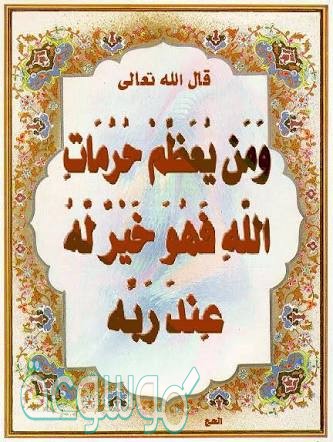 قال الله تعالى
وَمَن يُعَظِّمْ حُرُمَاتِ
اللَّهِ فَهُوَ خَيْرٌ لَهُ
عِندَ رَبِّهِ
موسوعة
الحج